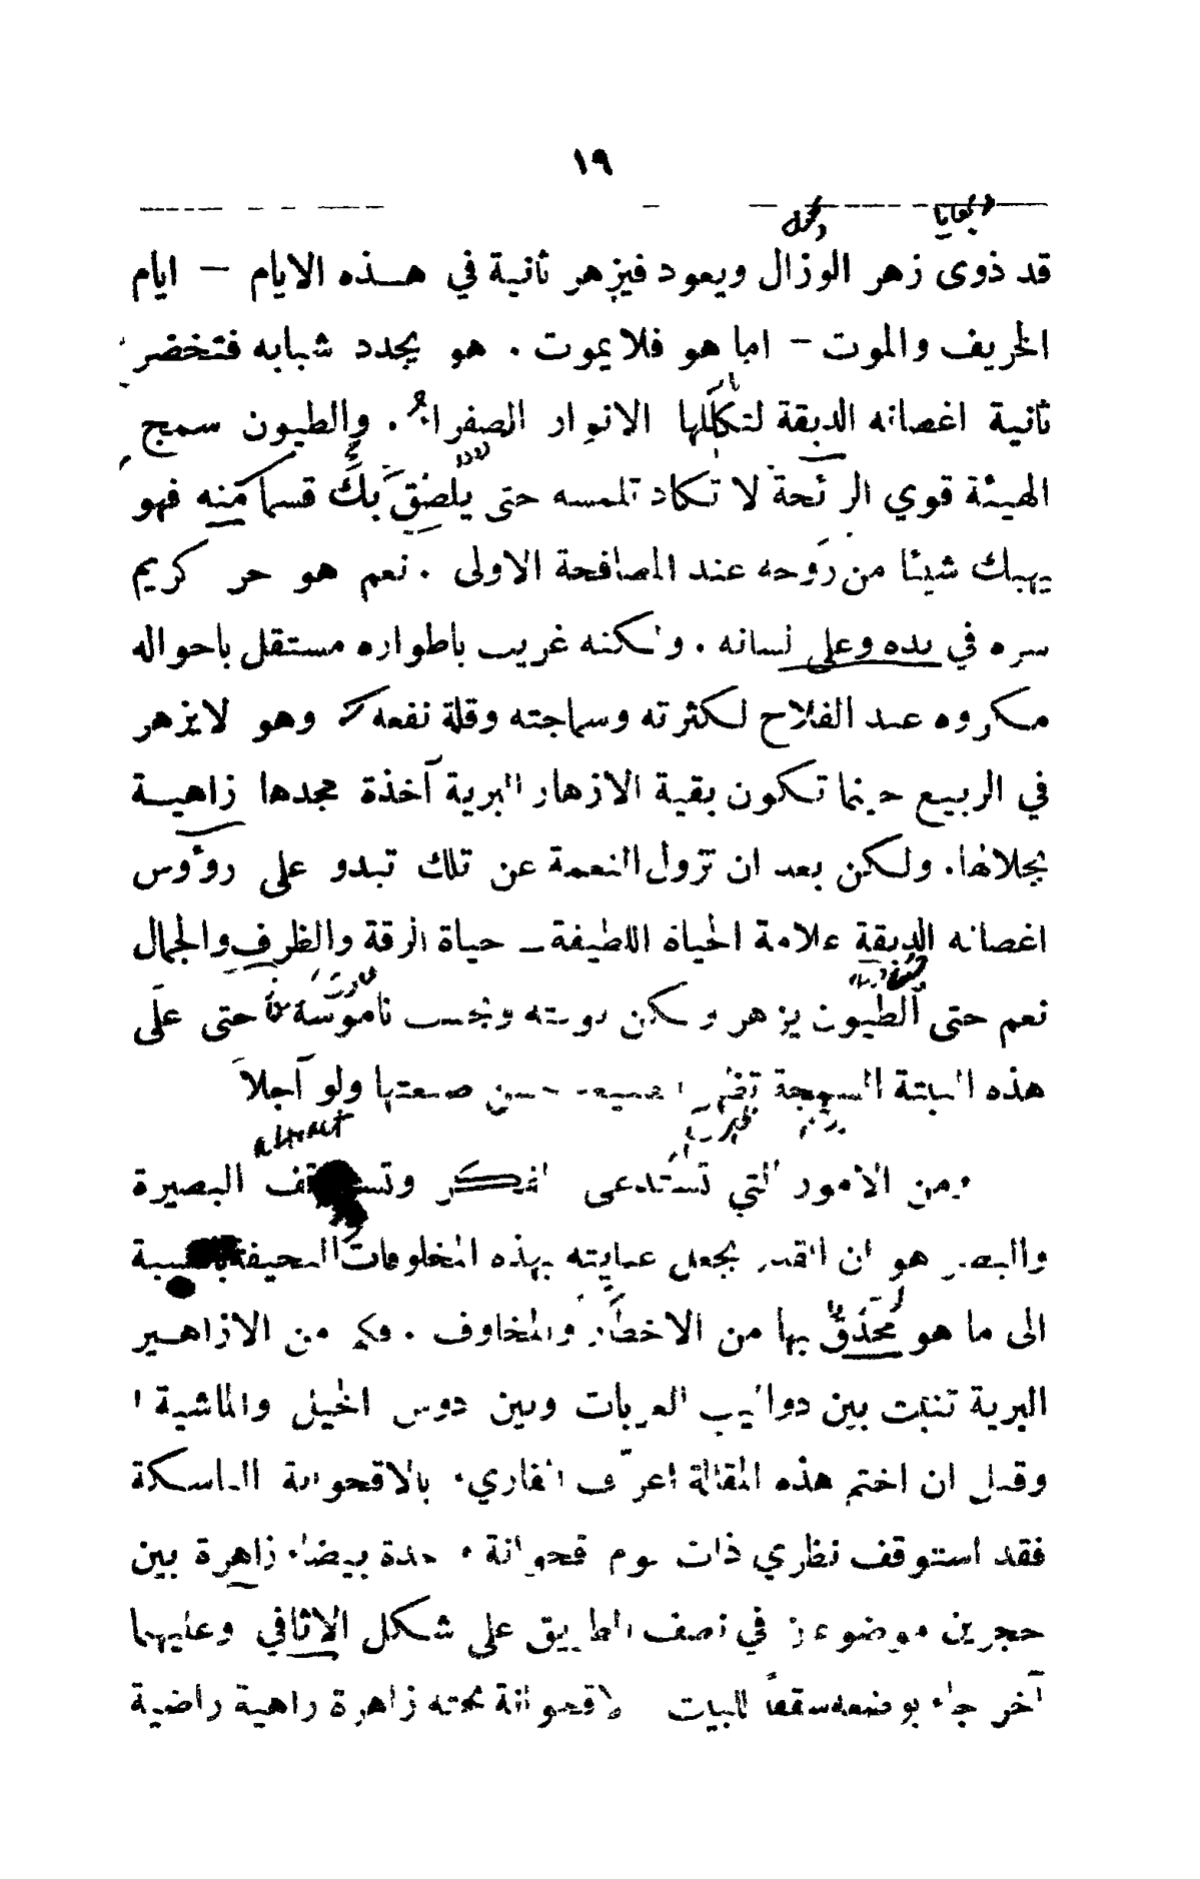 ١٩
قد ذوى زهر الوزال ويعود فيزهر ثانية في هذه الايام – ايام
الخريف والموت – اما هو فلا يموت . هو يجدد شبابه فتخضر
ثانية اغصانه الدبقة لتكللها الانوار الصفراء . والطيون سمج
الهيئة قوي الرائحة لا تكاد تلمسه حتى يلصق بك قسما منه فهو
يهبك شيئا من روحه عند المصافحة الاولى . نعم هو حر كريم
سره في يده وعلى لسانه . ولكنه غريب باطواره مستقل باحواله
مكروه عند الفلاح لكثرته وسماجته وقلة نفعه وهو لا يزهر
في الربيع حينما تكون بقية الازهار البرية آخذة مجدها زاهية
بجلالها . ولكن بعد ان تزول النعمة عن تلك تبدو على رؤوس
اغصانه الدبقة علامة الحياة اللطيفة – حياة الرقة والظرف والجمال
نعم حتى الطيون يزهر ولكن حتى على
هذه النبتة السمجة تظهر الطبيعة حسن صنعتها ولو آجلاً
abstract
ومن الامور التي تستدعي الفكر وتستوقف البصيرة
والبصر هو ان القدر يجعل عنايته بهذه المخلوقات النحيفة بالنسبة
الى ما هو محدق بها من الاخطار والمخاوف . فكم من الازاهير
البرية تنبت بين دواليب العربات وبين دوس الخيل والماشية !
وقبل ان اختم هذه المقالة اعرّف القارئ بالاقحوانة الناسكة
فقد استوقف نظري ذات يوم اقحوانة واحدة بيضاء زاهرة بين
حجرين موضوعين في نصف الطريق على شكل الاثافي وعليهما
آخر جاء بوضعه سقفاً للبيت والاقحوانة تحته زاهرة زاهية راضية